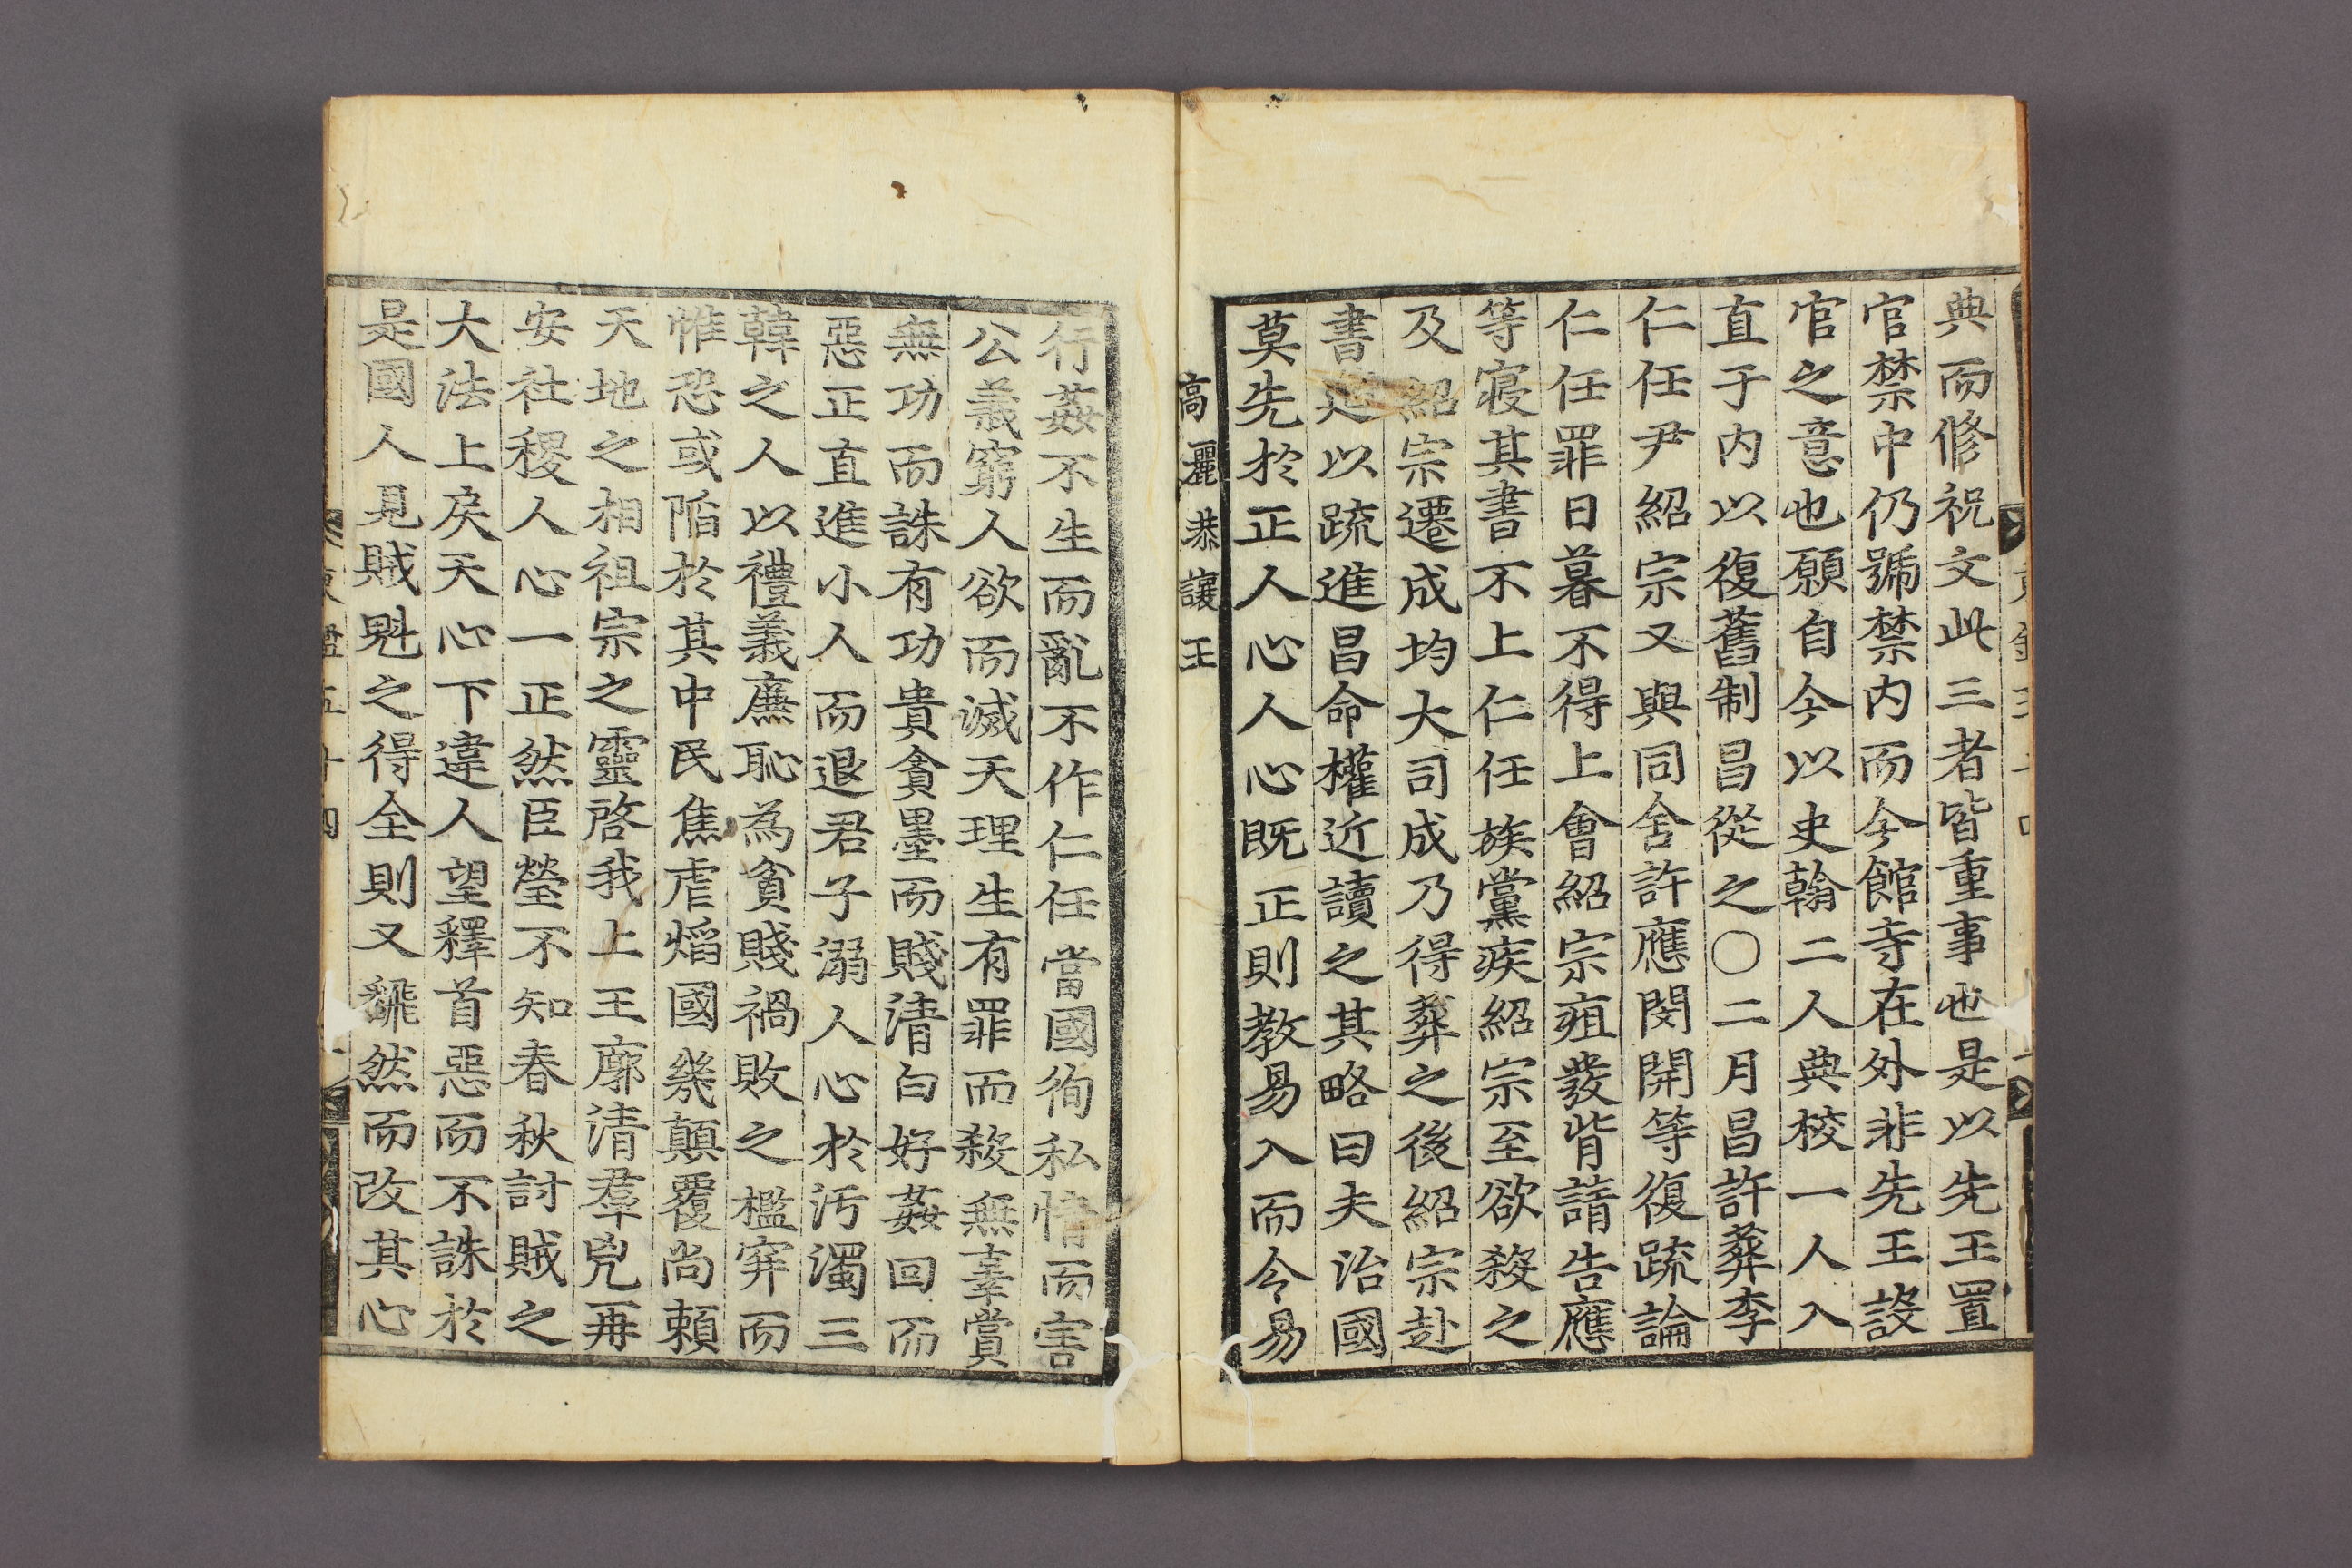 典而修祝文此三者皆重事也是以先王置
官禁中仍號禁內而今館寺在外非先王設
官之意也願自今以史翰二人典校一人入
直于內以復舊制昌從之〇二月昌許彝李
仁任尹紹宗又與同舍許應閔開等復疏論
仁任罪日暮不得上會紹宗疽發背請告應
等寢其書不上仁任族黨疾紹宗至欲殺之
及紹宗遷成均大司成乃得彝之後紹宗赴
書筵以疏進昌命權近讀之其略曰夫治國
莫先於正人心人心既正則教易入而令易
高麗恭讓王
行姦不生而亂不作仁任當國徇私情而害
公義窮人欲而滅天理生有罪而殺無辜賞
無功而誅有功貴貪墨而賤清白好姦回而
惡正直進小人而退君子溺人心於汚濁三
韓之人以禮義廉恥為貧賤禍敗之檻穽而
惟恐或陷於其中民焦虐焰國幾顛覆尚賴
天地之相祖宗之靈啓我上王廓清羣兇再
安社稷人心一正然臣瑩不知春秋討賊之
大法上戾天心下違人望釋首惡而不誅於
是國人見賊魁之得全則又飜然而改其心